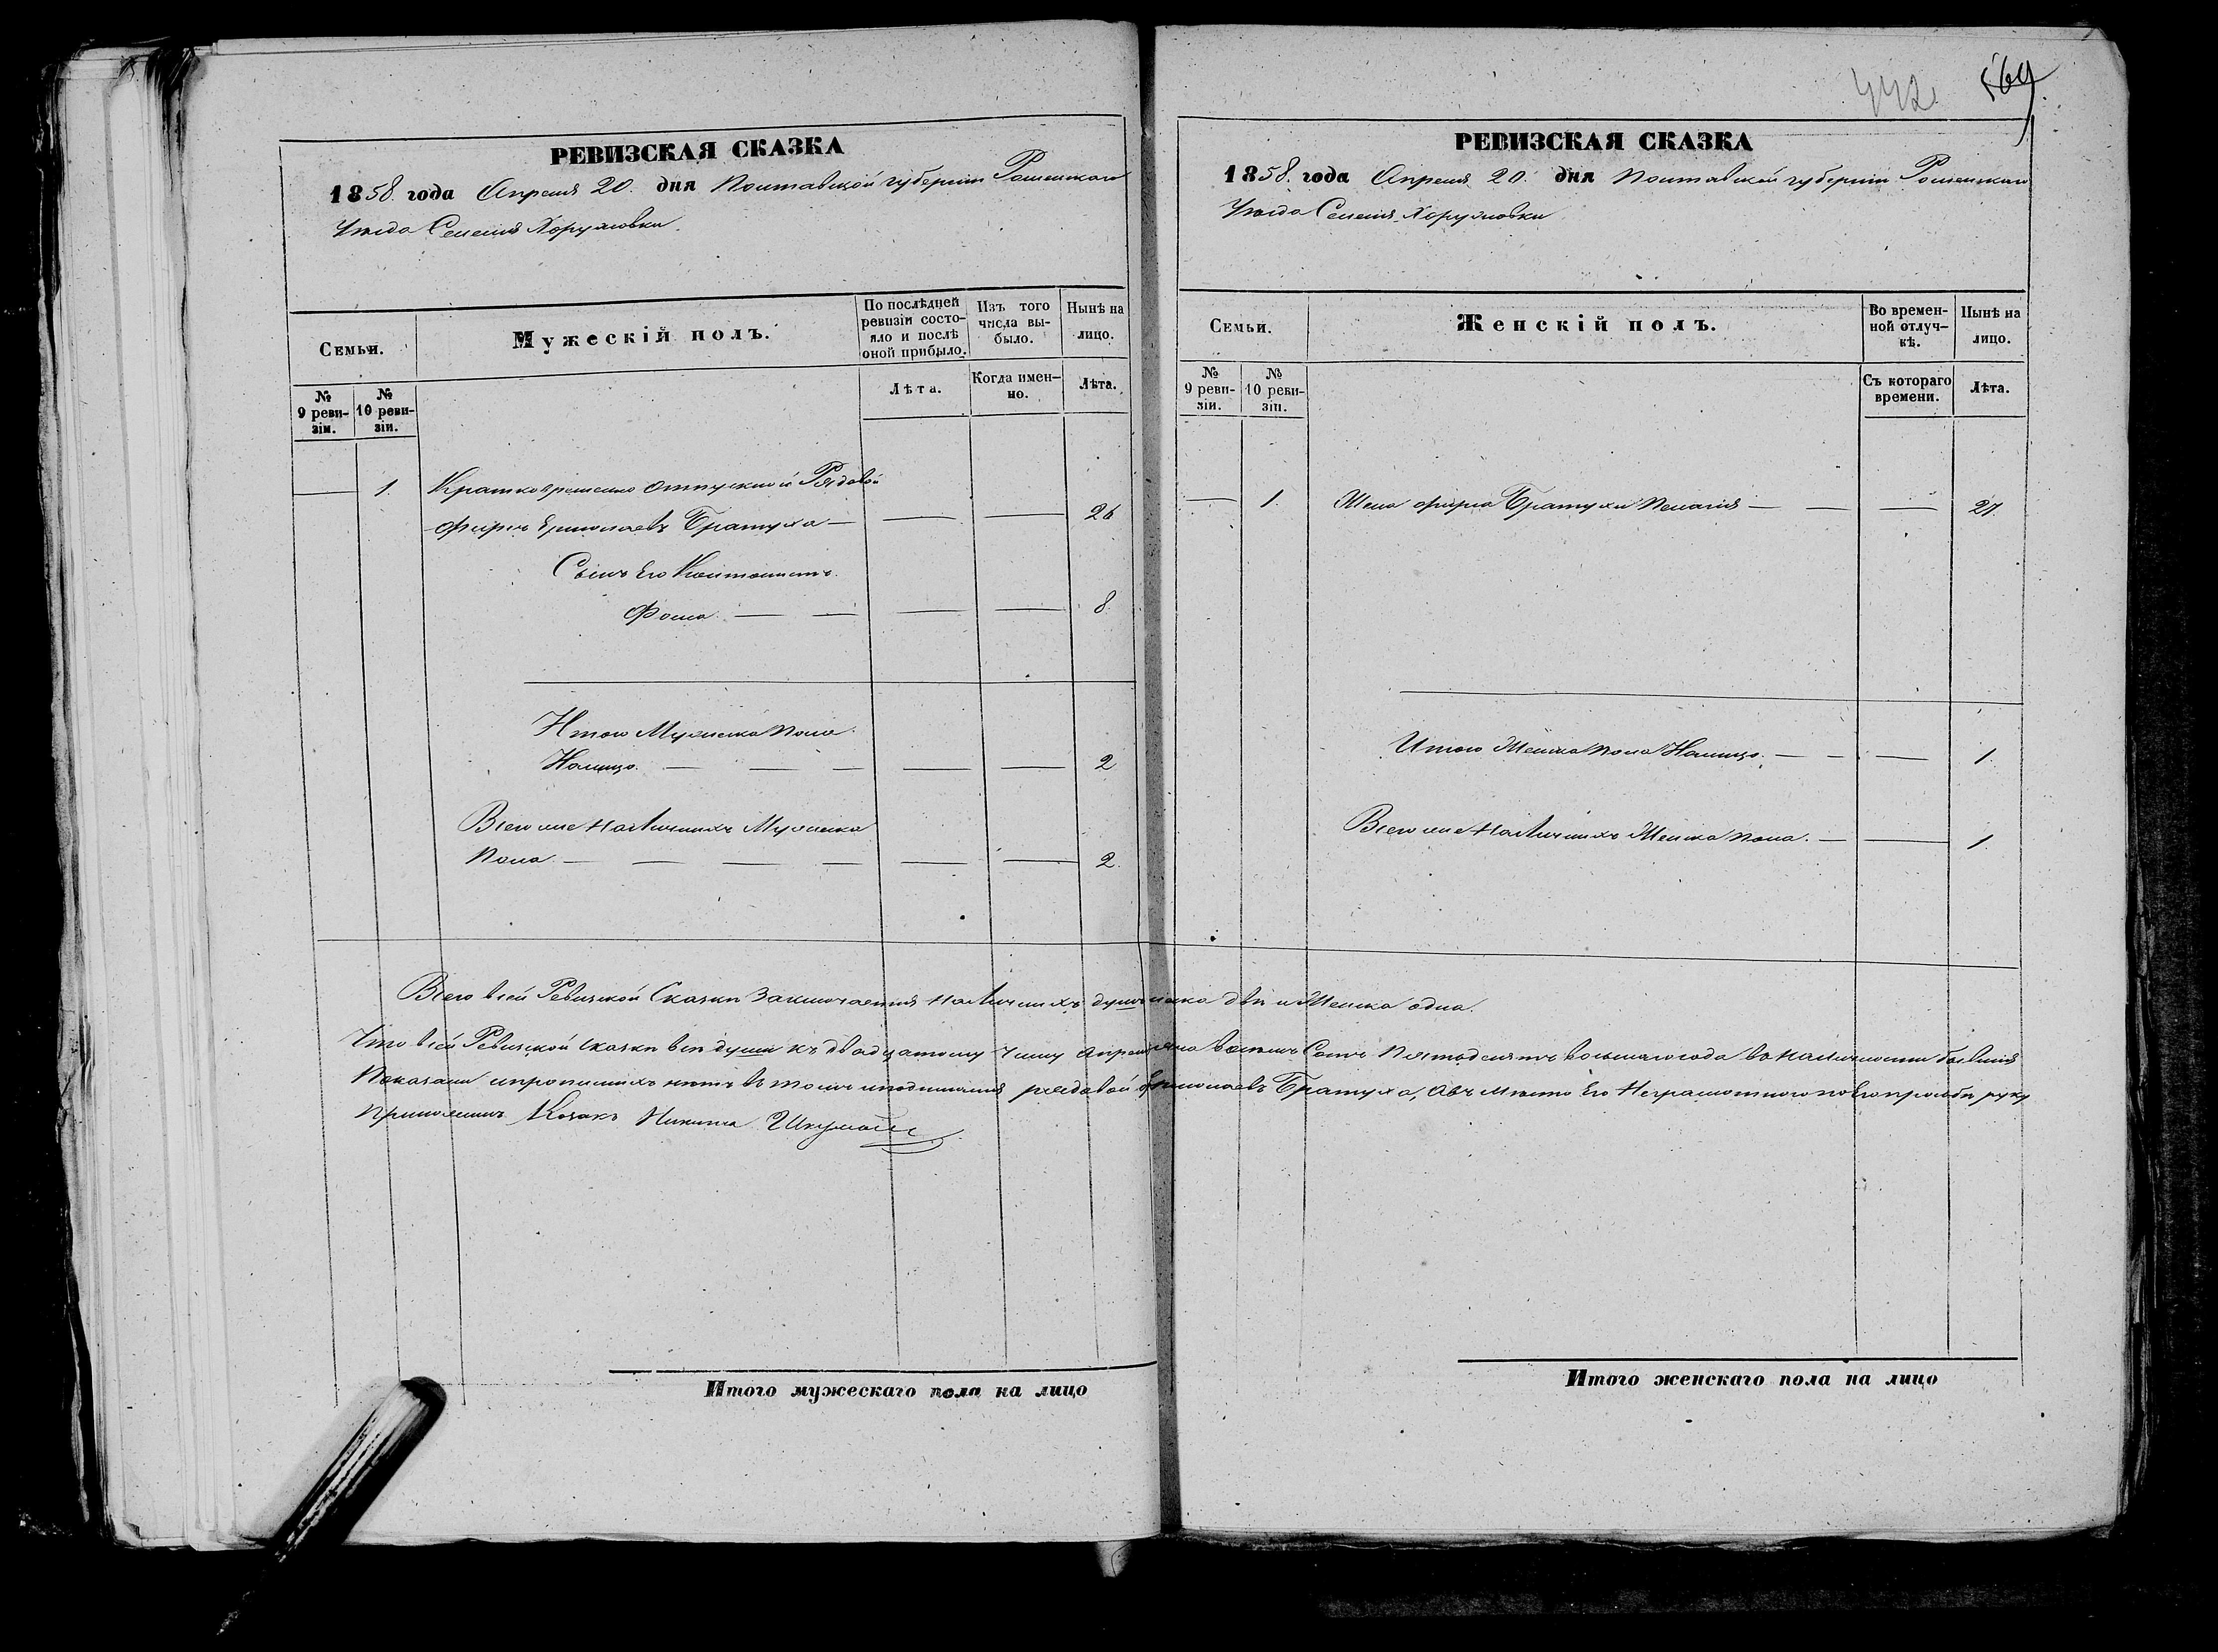 442 569
РЕВИЗСКАЯ СКАЗКА
1858. года Апреля 20. дня Полтавской губернии Роменскаго
Уезда Селения Хоружовки.
Семьи.
Мужескій полъ.
По послѣдней ревизіи состояло и послѣ оной прибыло.
Изъ того числа выбыло.
Нынѣ на лицо.
№ 9 ревизіи.
№ 10 ревизіи.
Лѣта.
Когда именно.
Лѣта.
1. Кратковременно отпускной Рядовой
Ермолаевъ Братуха — — — 26
Сынъ Его Кантонистъ
Фома — — — — 8.
Итого Мужеска Пола
Налицо. — — — — — 2
Всего же Наличныхъ Мужеска
Пола — — — — — — 2.
РЕВИЗСКАЯ СКАЗКА
1858. года Апреля 20. дня Полтавской губернии Роменскаго
Уезда Селения Хоружовки
Семьи.
Женскій полъ.
Во временной отлучкѣ.
Нынѣ на лицо.
№ 9 ревизіи.
№ 10 ревизіи.
Съ котораго времени.
Лѣта.
— 1. Жена Братухи Пелагія — — — 27.
Итого Женска Пола Налицо. — — — 1.
Всего же Наличныхъ Женска Пола. — — 1.
Всего въ сей Ревизской Сказки Заключается Наличныхъ душъ две и Женска одна.
Что в сей Ревизской сказки все души къ двадцатому Числу Апреля Сотъ Пятдесятъ восьмаго года въ Наличности бывшия
Показаны и прописныхъ нетъ в томъ и подписался рядовой Ермолаевъ Братуха, а въ место Его Неграмотного по Его прозьбе руку
Приложилъ Козакъ Никита
Итого мужескаго пола на лицо
Итого женскаго пола на лицо